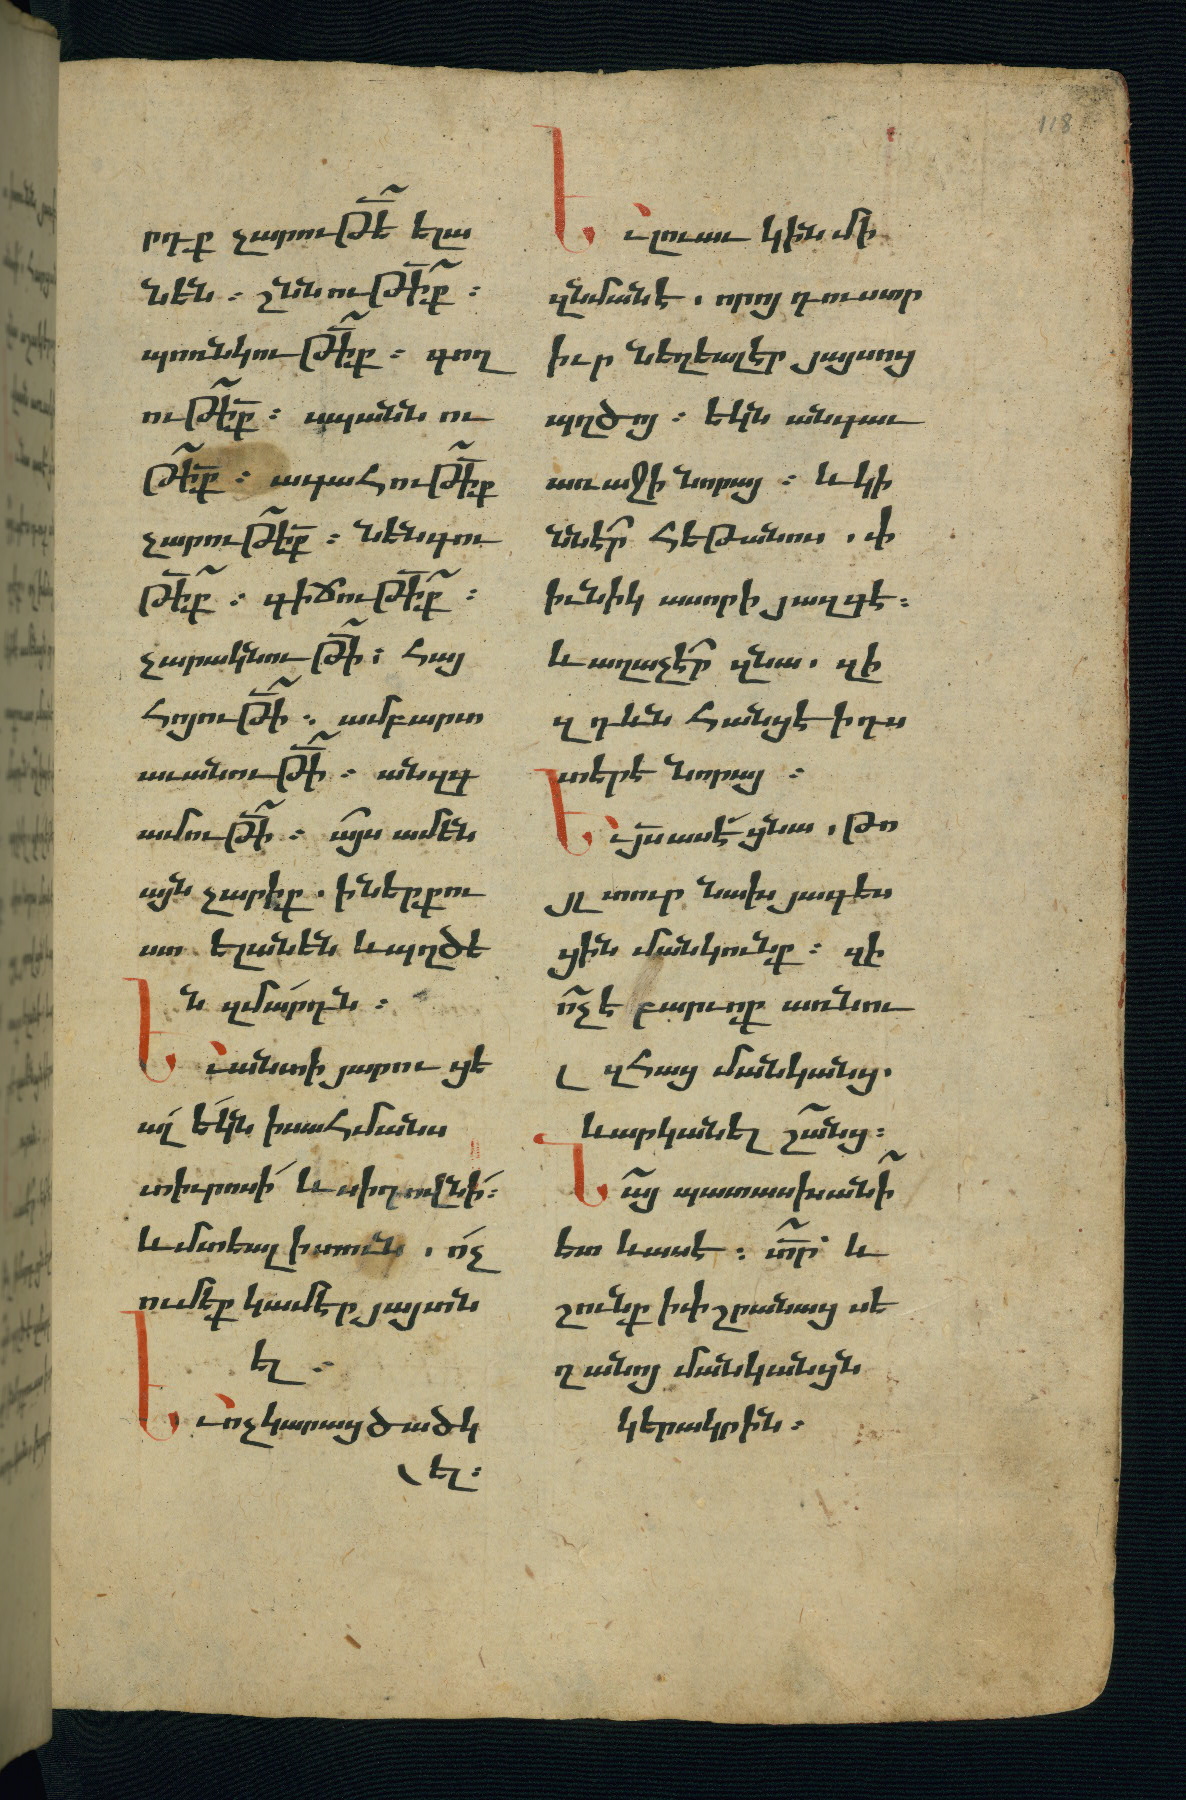 118
րդք չարութե̃ ելա
նեն ։ շնութի̃ք ։
պոռնկութի̃ք ։ գող
ութի̃ք ։ սպանն ու
թի̃ք ։ ագահութի̃ք
չարութի̃ք ։ նենգու
թի̃ք ։ գիճութի̃ք ։
չարակնութի̃ ։ հայ
հոյութի̃ ։ ամբարտ
աւանութի̃ ։ անզգ
ամութի̃ ։ ա̃յս ամէն
այն չարիք . ի ներքու
ստ ելանեն և պղծե
ն զմարդն ։
Եւ անտի յարուցե
ալ եկն ի սահմանս
տիւրոսի և սիդովնի ։
և մտեալ ի տուն . ոչ
ումեք կամէր յայտն
ել ։
Եւ ոչ կարաց ծածկ
ել ։
Եւ լուաւ կին մի
զնմանէ . որոյ դուստր
իւր նեղեալէր յայսոյ
պղծոյ ։ եկն անգաւ
առաջի նորայ ։ և կի
նն էր հեթանոս . փ
իւնիկ ասորի յազգէ ։
և աղաչէր զնա . զի
զդևն հանցէ ի դս
տերէ նորայ ։
Եւ յս̃ ասէ ցնա . թո
յլ տուր նախ յագես
ցին մանկունք ։ զի
ո̃չ է բարւոք առնու
լ զհաց մանկանց .
և արկանել շանց ։
Նա̃ց պատասխանի̃
ետ և ասէ ։ տ̃ր և
շունք ի փշրանաց սե
ղանոյ մանկանցն
կերակրին ։